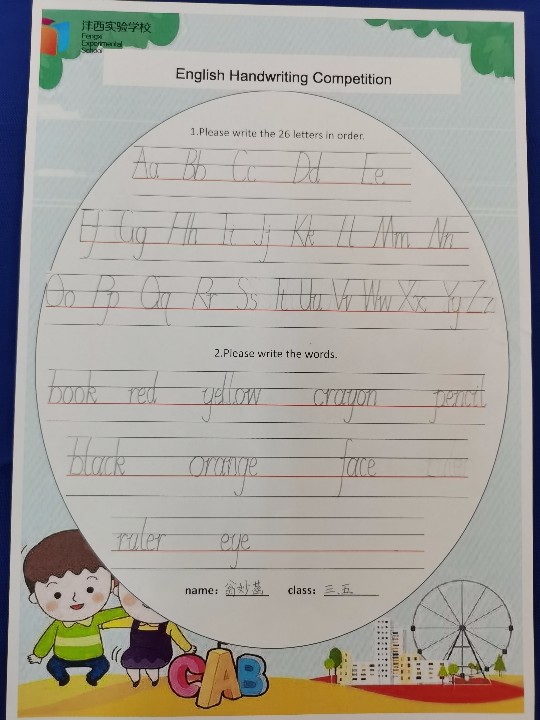 沣西实验学校
Fengxi
Experimental
School
English Handwriting Competition
1.Please write the 26 letters in order.
Aa Bb Cc Dd Ee
Ff Gg Hh Ii Jj Kk Ll Mm Nn
Oo Pp Qq Rr Ss Tt Uu Vv Ww Xx Yy Zz
2.Please write the words.
book red yellow crayon pencil
black orange face
ruler eye
name: class: 三.五
CAB